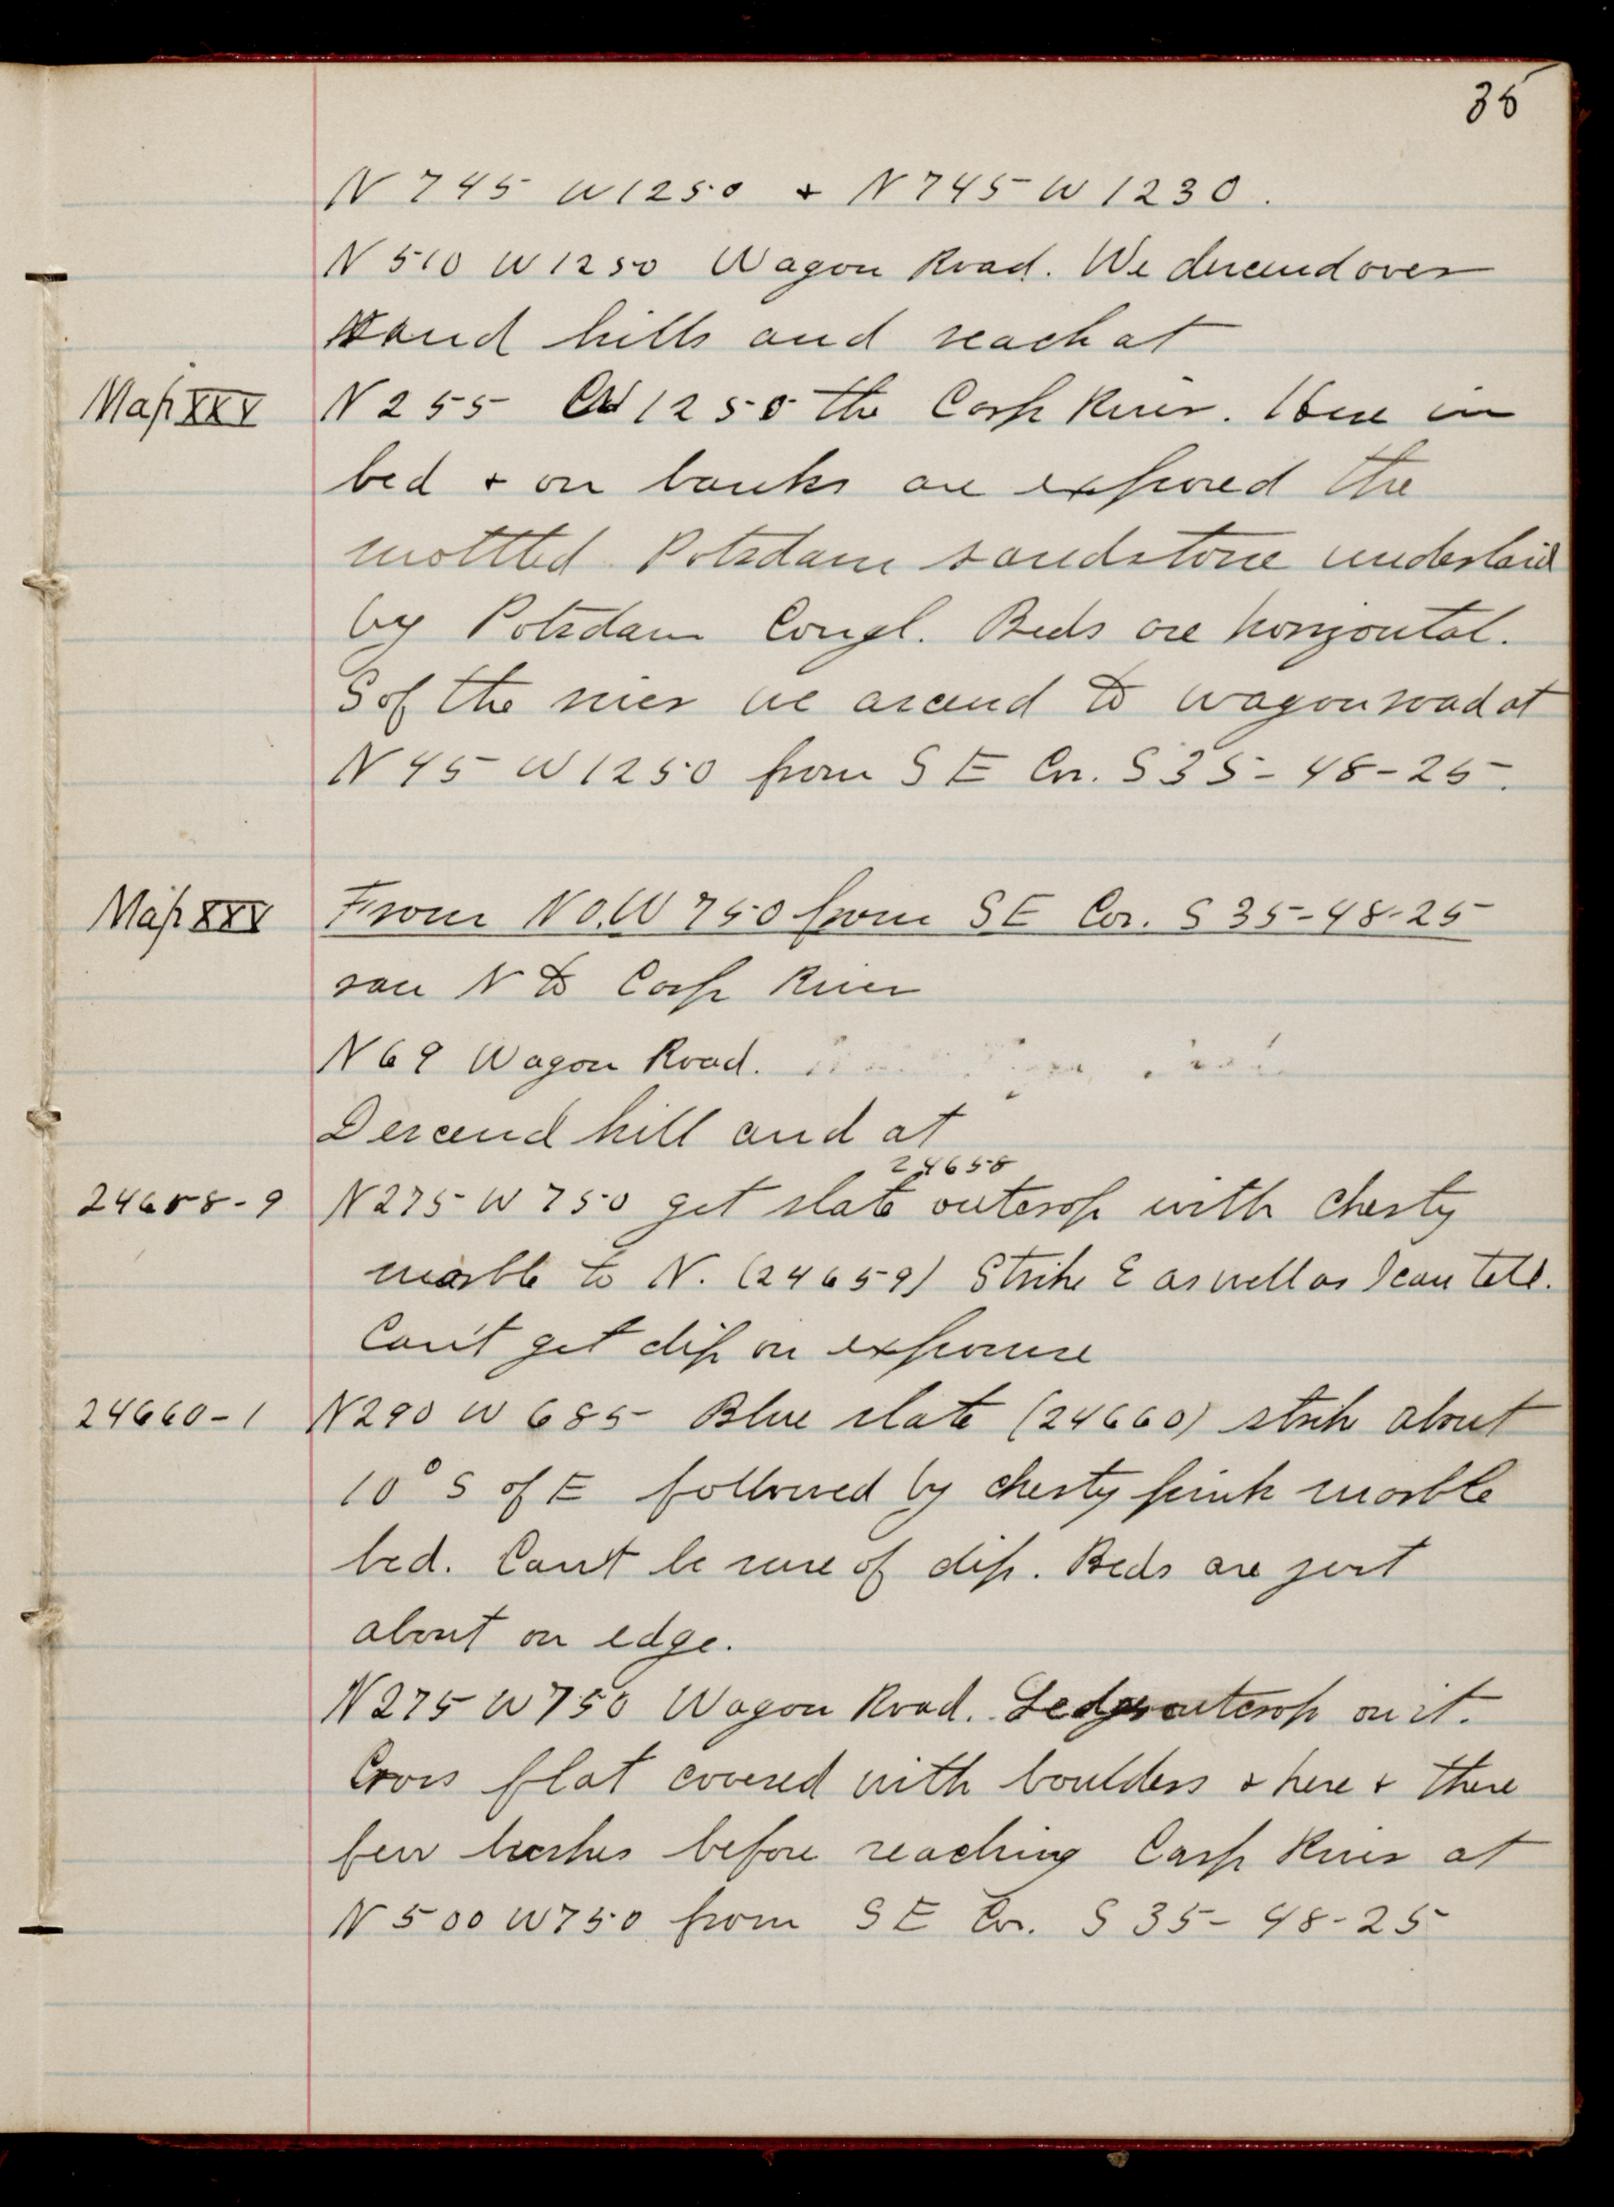 35
N 745 W 1250 + N 745 W 1230.
N 510 W 1250 Wagon Road. We descend over
sand hills and reach at
Map XXV N 255 W 1250 the Carp River. Here in
bed + on banks are exposed the
mottled Potsdam sandstone underlaid
by Potsdam Congl. Beds are horizontal.
S of the river we ascend to wagon road at
N 45 W 1250 from S E Cor. S 35-48-25.
Map XXV From N 0. W 750 from S E Cor. S 35-48-25
ran N to Carp River
N 69 Wagon Road.
Descend hill and at
24658
24658-9 N 275 W 750 get slate outcrop with cherty
marble to N. (24659) Strike E as well as I can tell.
Can't get dip on exposure
24660-1 N 290 W 685 Blue slate (24660) strike about
10° S of E followed by cherty pink marble
bed. Can't be sure of dip. Beds are just
about on edge.
N 275 W 750 Wagon Road. Ledges outcrop on it.
Cross flat covered with boulders + here + there
few bushes before reaching Carp River at
N 500 W 750 from S E Cor. S 35-48-25